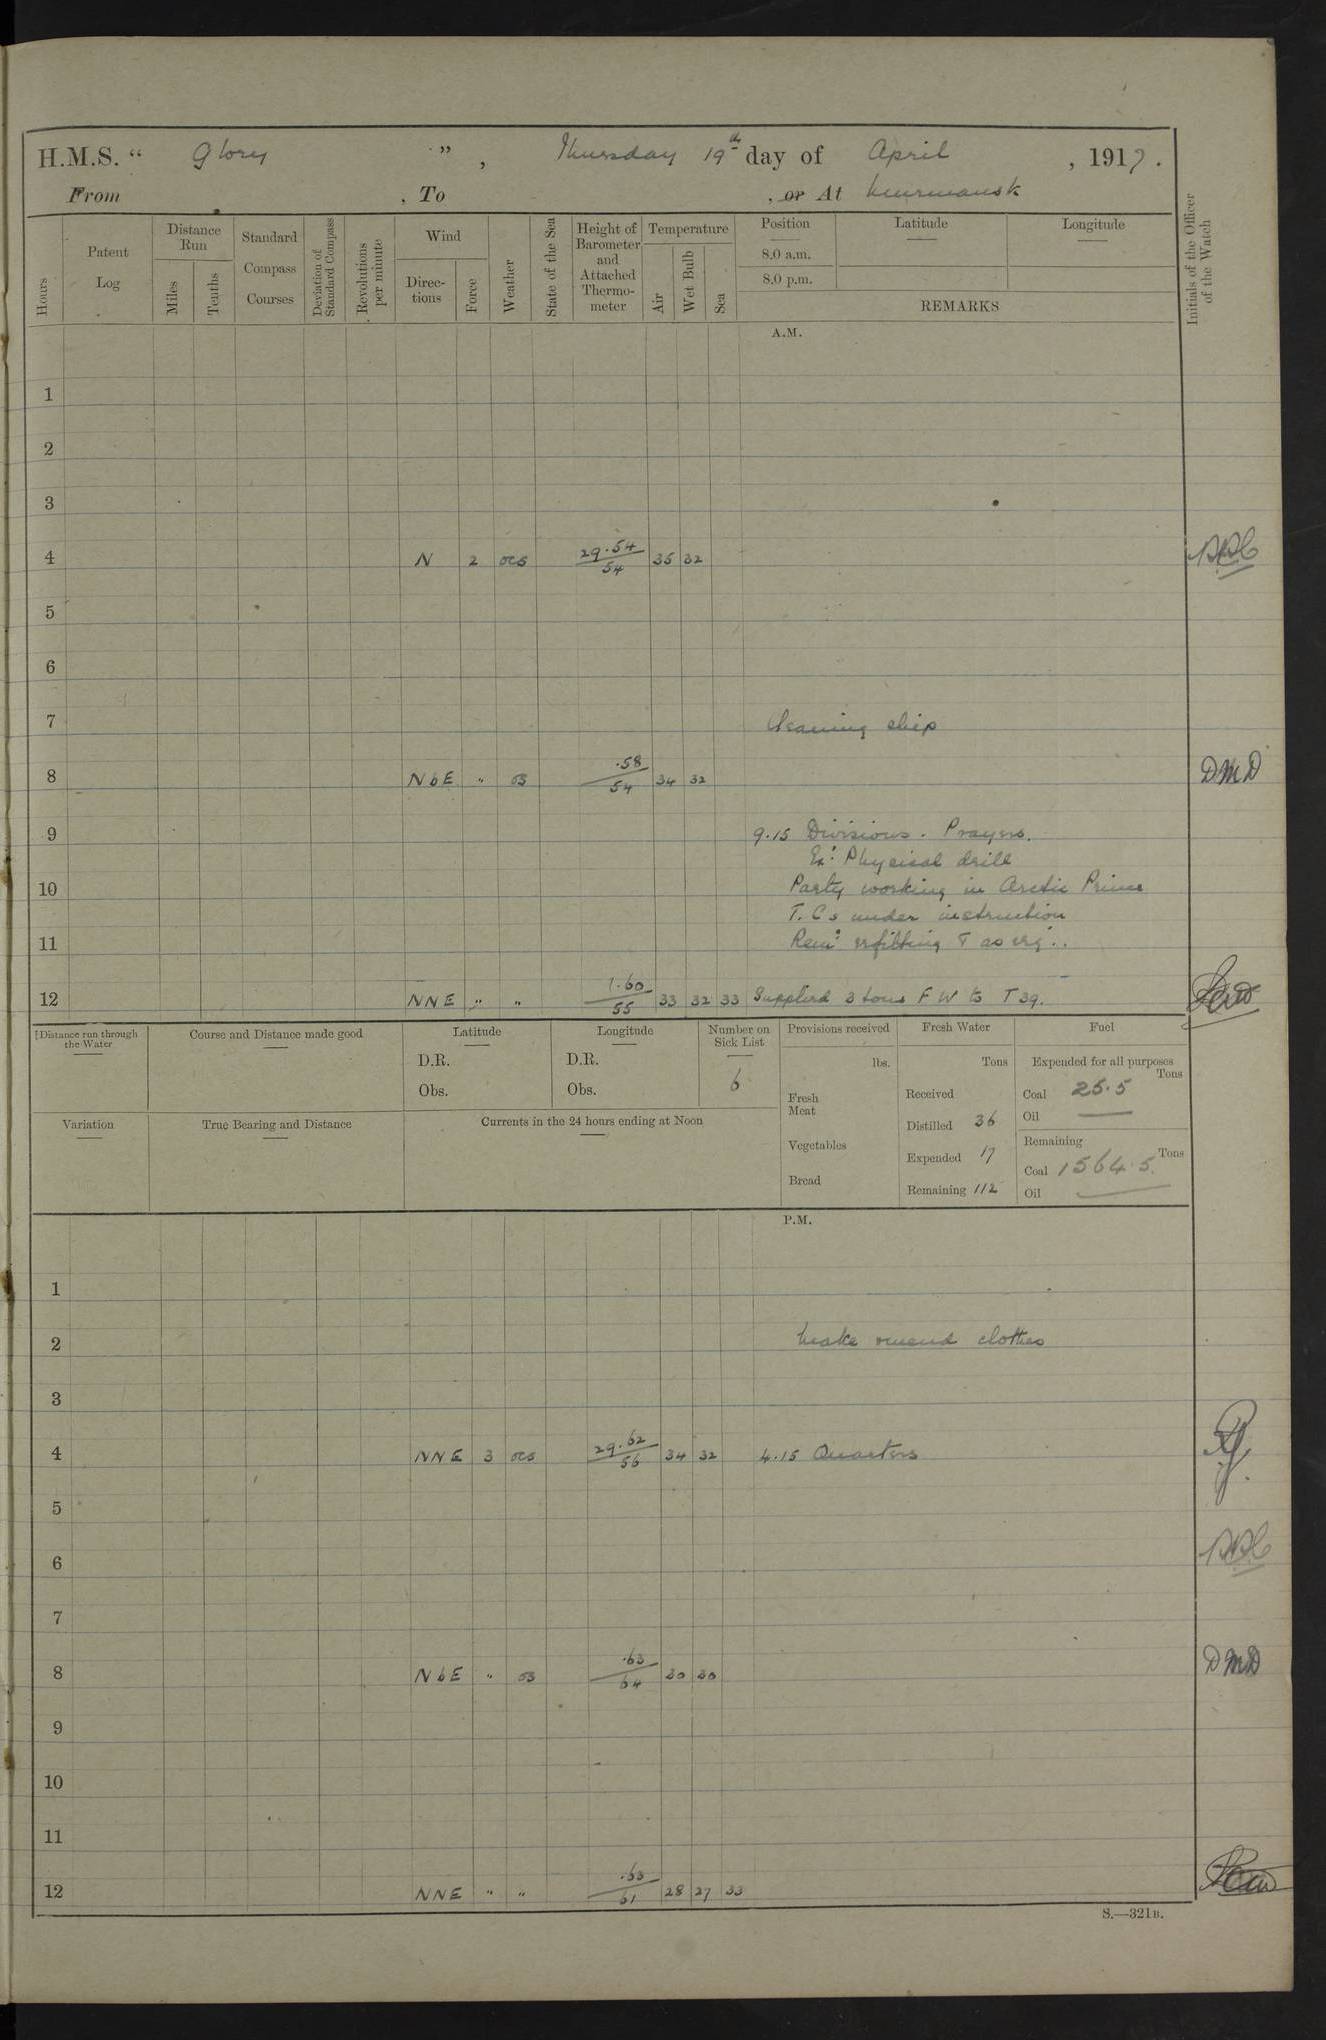 H.M.S. “ Glory ” , Thursday 19th day of April , 1917.
From , To , or At Murmansk
Hours
Patent Log
Distance Run
Miles
Tenths
Standard Compass Courses
Deviation of Standard Compass
Revolutions per minute
Wind
Directions
Force
Weather
State of the Sea
Height of Barometer and Attached Thermometer
Temperature
Air
Wet Bulb
Sea
Position
8.0 a.m.
8.0 p.m.
Latitude
Longitude
REMARKS
Initials of the Officer of the Watch
A.M.
1
2
3
4 N 2 ocs 29.54/54 35 32
5
6
7 Cleaning ship
8 NbE " os .58/54 34 32 DMD
9 9.15 Divisions. Prayers.
Ex: Physical drill
10 Party working in Arctic Prince
T.Cs under instruction
11 Rem: refitting & as req:.
12 NNE " " .60/55 33 32 33 Supplied 3 tons F W to T 39.
Distance run through the Water
Course and Distance made good
Latitude
D.R.
Obs.
Longitude
D.R.
Obs.
Number on Sick List
6
Provisions received
lbs.
Fresh Meat
Vegetables
Bread
Fresh Water
Tons
Received
Distilled 36
Expended 17
Remaining 112
Fuel
Expended for all purposes
Tons
Coal 25.5
Oil —
Remaining
Tons
Coal 1564.5
Oil —
Variation
True Bearing and Distance
Currents in the 24 hours ending at Noon
P.M.
1
2 Make mend clothes
3
4 NNE 3 ocs 29.62/56 34 32 4.15 Quarters
5
6
7
8 NbE " os .63/64 30 30 DMD
9
10
11
12 NNE " " .63/61 28 27 33
S.—321B.